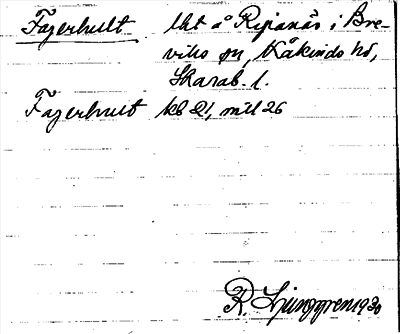 Fagerhult lht å Ripanäs i Bre-
viks sn, Kåkinds hd,
Skarab. l.
Fagerhult kb 21, mtl 26
R. Ljunggren 1930